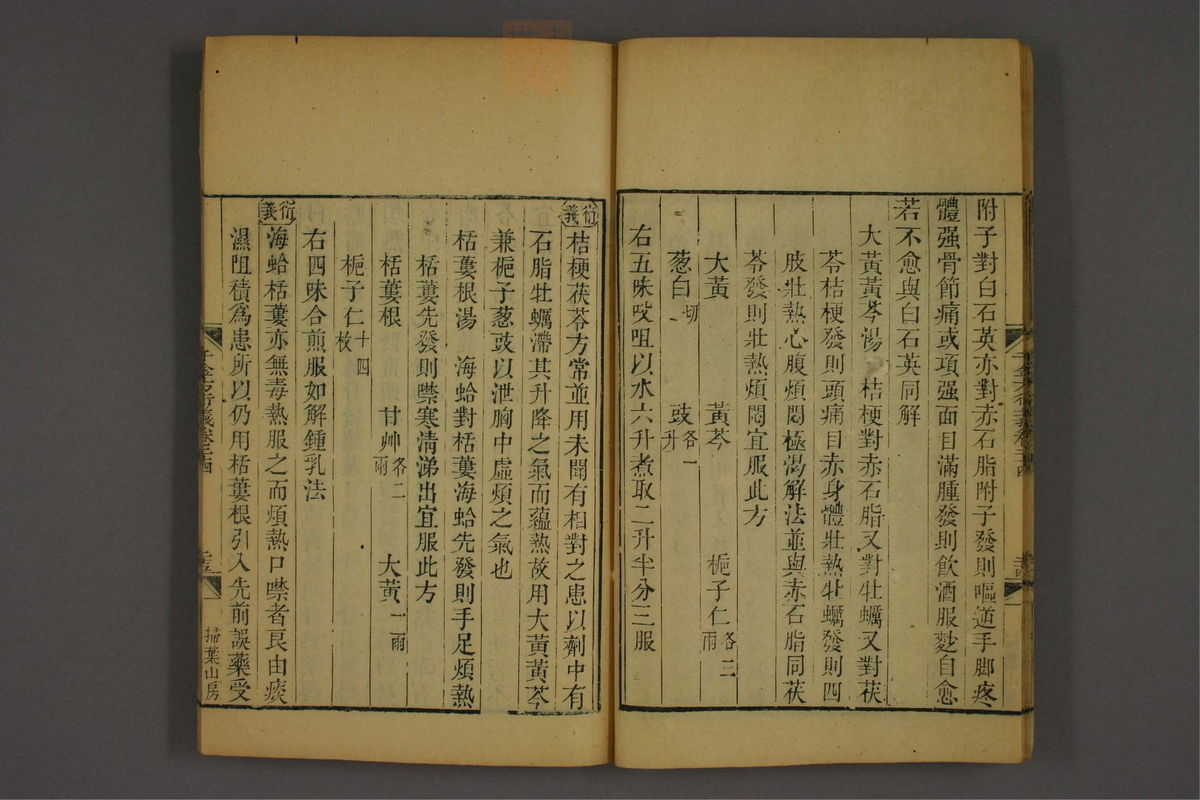 附子對白石英亦對赤石脂附子發則嘔逆手脚疼
體强骨節痛或項强面目滿腫發則飲酒服麨自愈
若不愈與白石英同解
大黃黃芩湯 桔梗對赤石脂又對牡蠣又對茯
苓桔梗發則頭痛目赤身體壯熱牡蠣發則四
肢壯熱心腹煩悶極渴解法並與赤石脂同茯
苓發則壯熱煩悶宜服此方
大黃 黃芩 梔子仁各三兩
葱白切 豉各一升
右五味㕮咀以水六升煮取二升半分三服
衍義桔梗茯苓方常並用未聞有相對之患以劑中有
石脂牡蠣滯其升降之氣而蘊熱故用大黃黃芩
兼梔子葱豉以泄胸中虛煩之氣也
栝蔞根湯 海蛤對栝蔞海蛤先發則手足煩熱
栝蔞先發則噤寒清涕出宜服此方
栝蔞根 甘艸各二兩 大黃一兩
梔子仁十四枚
右四味合煎服如解鍾乳法
衍義海蛤栝蔞亦無毒熱服之而煩熱口噤者良由痰
濕阻積爲患所以仍用栝蔞根引入先前誤藥受
千金方衍義卷二十四
掃葉山房